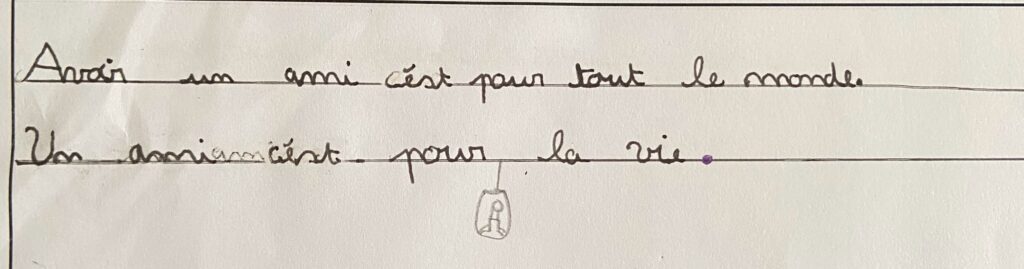 Avoir un ami c'est pour tout le monde.
Un ami c'est pour la vie.